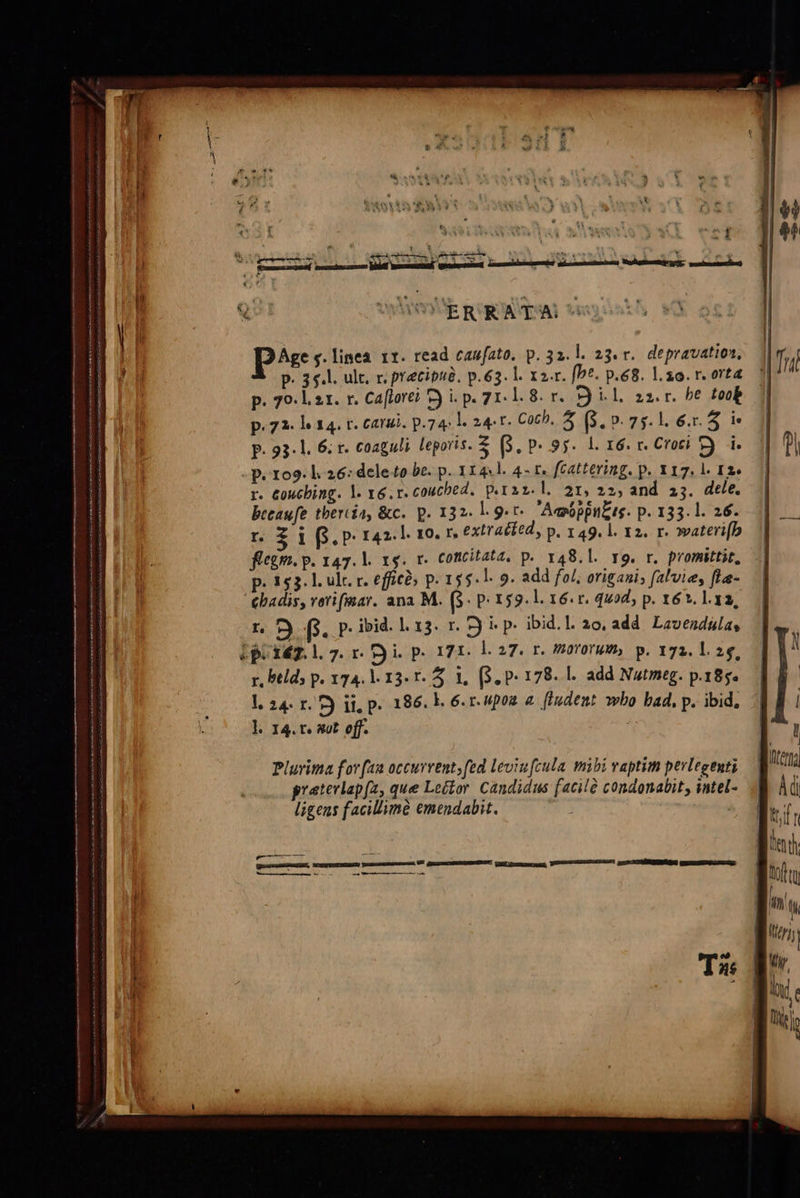 ERRATA
PAge 5. linea 11. read caufato. p. 32. l. 23. r. depravation,
p. 35. l. ult. r. præcipuè. p.63. l. 12.r. ſhe. p.68. l.20. r. orta
p. 70. l.21. r. Caſtorei ℈ i. p. 71. l. 8. r. ℈ i. l. 22. r. he took
p.72. l. 14. r. carui. p.74. l. 24. r. Coch. ʒ ß. p. 75. l. 6.r. ʒ i.
p. 93. l. 6. r. coaguli leporis. ʒ ß. p. 95. l. 16. r. Croci ℈ i.
p. 109. l. 26. dele to be. p. 114. l. 4. r. ſcattering. p. 117. l. 12.
r. couching. l. 16. r. couched. p.122. l. 21, 22, and 23. dele.
becauſe thericia, &c. p. 132. l. 9. r. Ἀπόῤῥηξις. p. 133. l. 26.
r. ʒ i ß. p. 142. l. 10. r. extracted, p. 149. l. 12. r. wateriſh
flegm. p. 147. l. 15. r. concitata. p. 148. l. 19. r. promittit,
p. 153. l. ult. r. efficè, p. 155. l. 9. add fol. origani, ſalviæ, ſtæ-
chadis, roriſmar. ana M. ß. p. 159. l. 16. r. quod, p. 161. l.12,
r. ℈ ß. p. ibid. l. 13. r. ℈ i. p. ibid. l. 20, add Lavendulæ
p. 162. l. 7. r. ℈ i. p. 171. l. 27. r. mororum, p. 172. l. 25,
r. held, p. 174. l. 13. r. ʒ i, ß. p. 178. l. add Nutmeg. p.185.
l. 24. r. ℈ ii. p. 186. l. 6. r. upon a ſtudent who had, p. ibid,
l. 14. r. not off.
Plurima forſan occurrent, ſed leviuſcula mihi raptim perlegenti
præterlapſa, quæ Lector Candidus facilè condonabit, intel-
ligens facillimè emendabit.
Τὰς